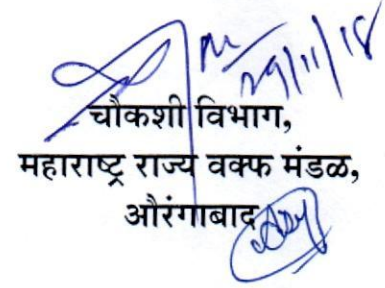 29/11/18
चौकशी विभाग,
महाराष्ट्र राज्य वक्फ मंडळ,
औरंगाबाद